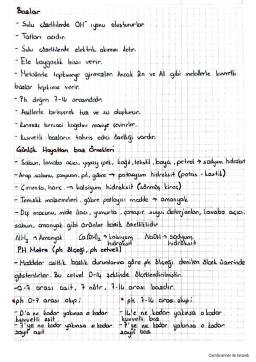 Bazlar
- Sulu çözeltilerde OH⁻ iyonu oluştururlar
- Tatları acıdır.
- Sulu çözeltilerde elektrik akımını iletir.
- Ele kayganlık hissi verir.
- Metallerle tepkimeye girmezler. Ancak Zn ve Al gibi metallerle kuvvetli
bazlar tepkime verir.
- Ph değeri 7-14 arasındadır
- Asitlerle birleşerek tuz ve su oluşturur.
- Kırmızı turnusol kağıdını maviye çevirirler.
- Kuvvetli bazların tahriş edici özelliği vardır.
Günlük Hayattan baz Örnekleri
- Sabun, lavabo açıcı, yapay ipek, kağıt, tekstil, boya, petrol → sodyum hidroksit
- Arap sabunu, şampuan, pil, gübre → potasyum hidroksit (potas - kostik)
- Çimento, harç → kalsiyum hidroksit (sönmüş kireç)
- Temizlik malzemeleri, gübre patlayıcı madde → amonyak
- Diş macunu, mide ilacı, yumurta, çamaşır suyu, deterjanlar, lavabo açıcı,
sabun, amonyak gibi ürünler bazik özelliktedir
NH₃ → Amonyak Ca(OH)₂ → kalsiyum hidroksit NaOH → sodyum hidroksit
PH Metre (ph ölçeği, ph cetveli)
- Maddeler asitlik bazlık durumlarına göre ph ölçeği denilen ölçek üzerinde
gösterilirler. Bu cetvel 0-14 şeklinde ölçeklendirilmiştir.
0-7 arası asit, 7 nötr, 7-14 bazdır.
• ph 0-7 arası olupi • ph 7-14 arası olupi
- 0'a ne kadar yakınsa o kadar kuvvetli asit - 14'e ne kadar yakınsa o kadar kuvvetli baz
- 7'ye ne kadar yakınsa o kadar zayıf asit - 7'ye ne kadar yakınsa o kadar zayıf baz
CamScanner ile tarandı